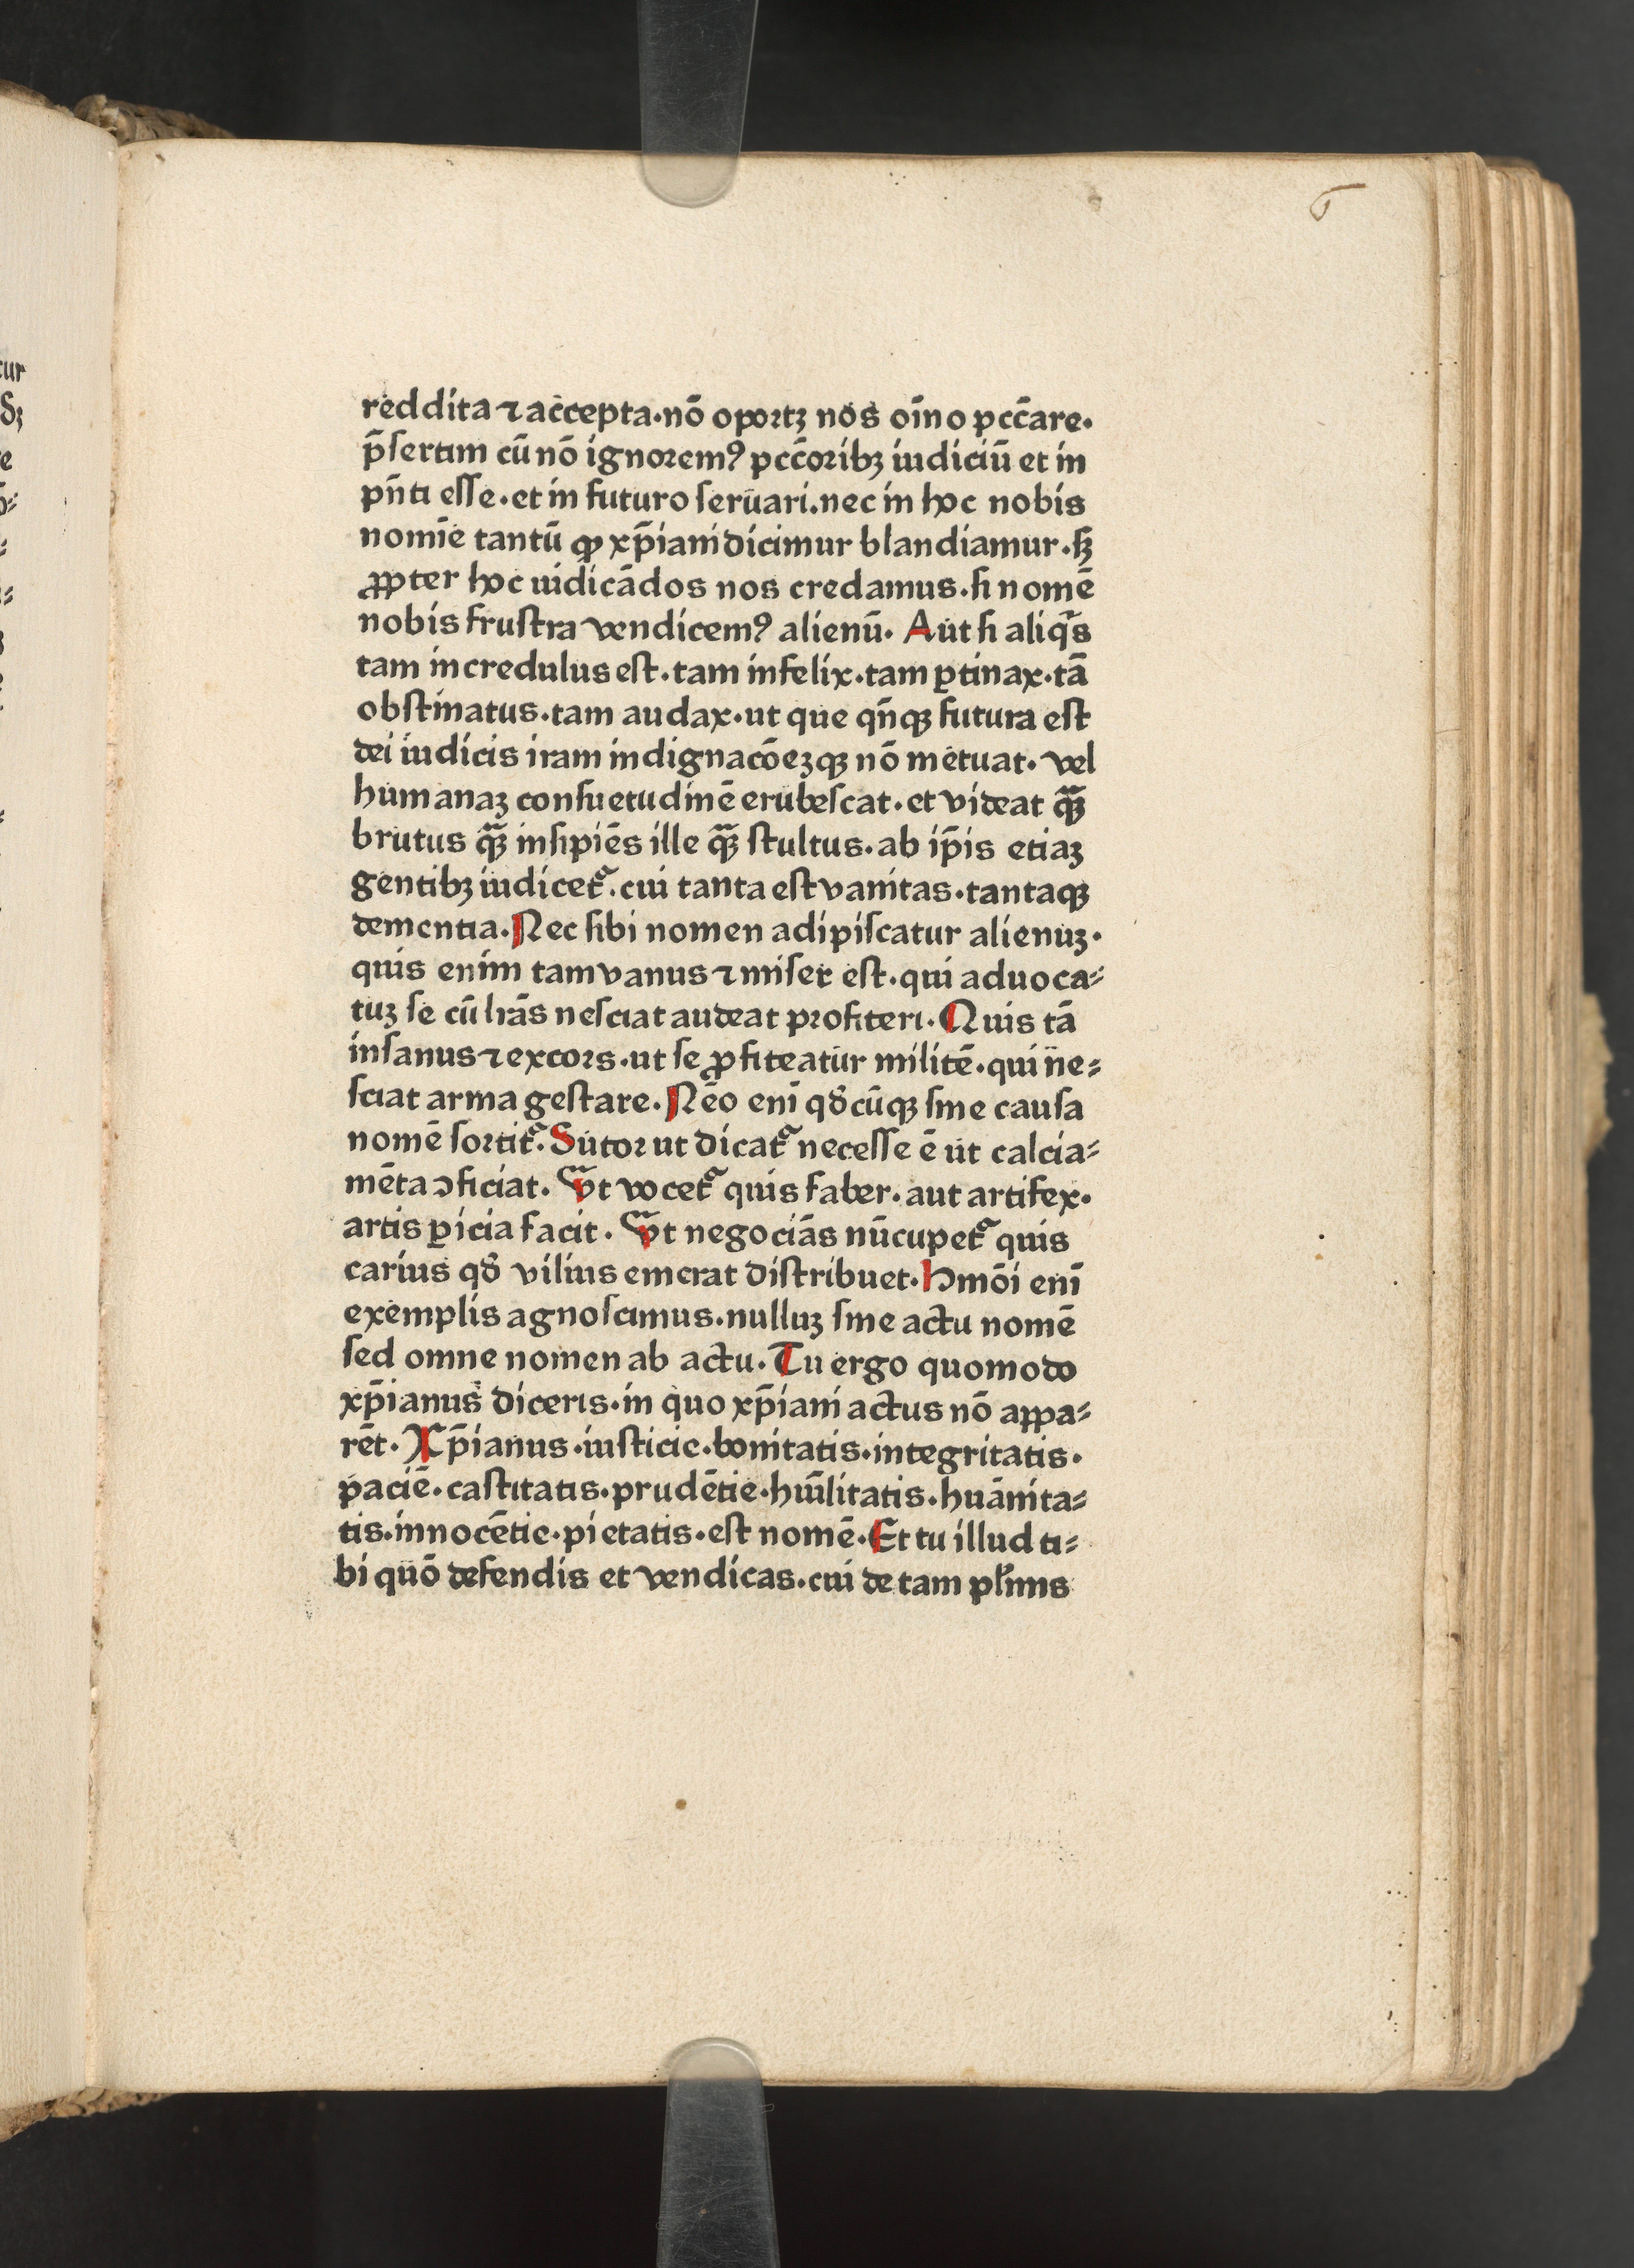 6
reddita ⁊ accepta·nō oportꝫ nos oīno pcc̄are·
p̄sertim cū nō ignorem⁹ pcc̄oribꝫ iudiciū et in
pn̄ti esse·et in futuro seruari.nec in hoc nobis
nomīe tantū ꝙ xp̄iani dicimur blandiamur·sꝫ
ꝓpter hoc iudicādos nos credamus·si nomē
nobis frustra vendicem⁹ alienū· Aut si aliqͥs
tam incredulus est·tam infelix·tam ꝑtinax·tā
obstinatus·tam audax·ut que qn̄qꝫ futura est
dei iudicis iram indignacōeꝫqꝫ nō metuat· vel
humanaꝫ consuetudinē erubescat·et videat qᷓꝫ
brutus qᷓꝫ insipiēs ille qᷓꝫ stultus·ab ip̄is etiaꝫ
gentibꝫ iudicet᷑·cui tanta est vanitas·tantaqꝫ
dementia·Nec sibi nomen adipiscatur alienuꝫ·
quis enim tam vanus ⁊ miser est·qui aduoca⸗
tuꝫ se cū lr̄as nesciat audeat profiteri·Quis tā
insanus ⁊ excors·ut se ꝓfiteatur militē·qui ne⸗
sciat arma gestare·Nēo enī qd̓cūqꝫ sine causa
nomē sortit᷑·Sutor ut dicat᷑ necesse ē ut calcia⸗
mēta ↄficiat· Vt vocet᷑ quis faber·aut artifex·
artis ꝑicia facit· Vt negociās nūcupet᷑ quis
carius qd̓ vilius emerat distribuet·Hmōi enī
exemplis agnoscimus·nulluꝫ sine actu nomē
sed omne nomen ab actu·Tu ergo quomodo
xp̄ianus diceris·in quo xp̄iani actus nō appa⸗
rēt·Xp̄ianus·iusticie·bonitatis·integritatis·
paciē·castitatis·prudētie·hūilitatis·huānita⸗
tis·innocētie·pietatis·est nomē·Et tu illud ti⸗
bi quō defendis et vendicas·cui de tam pl̓imis